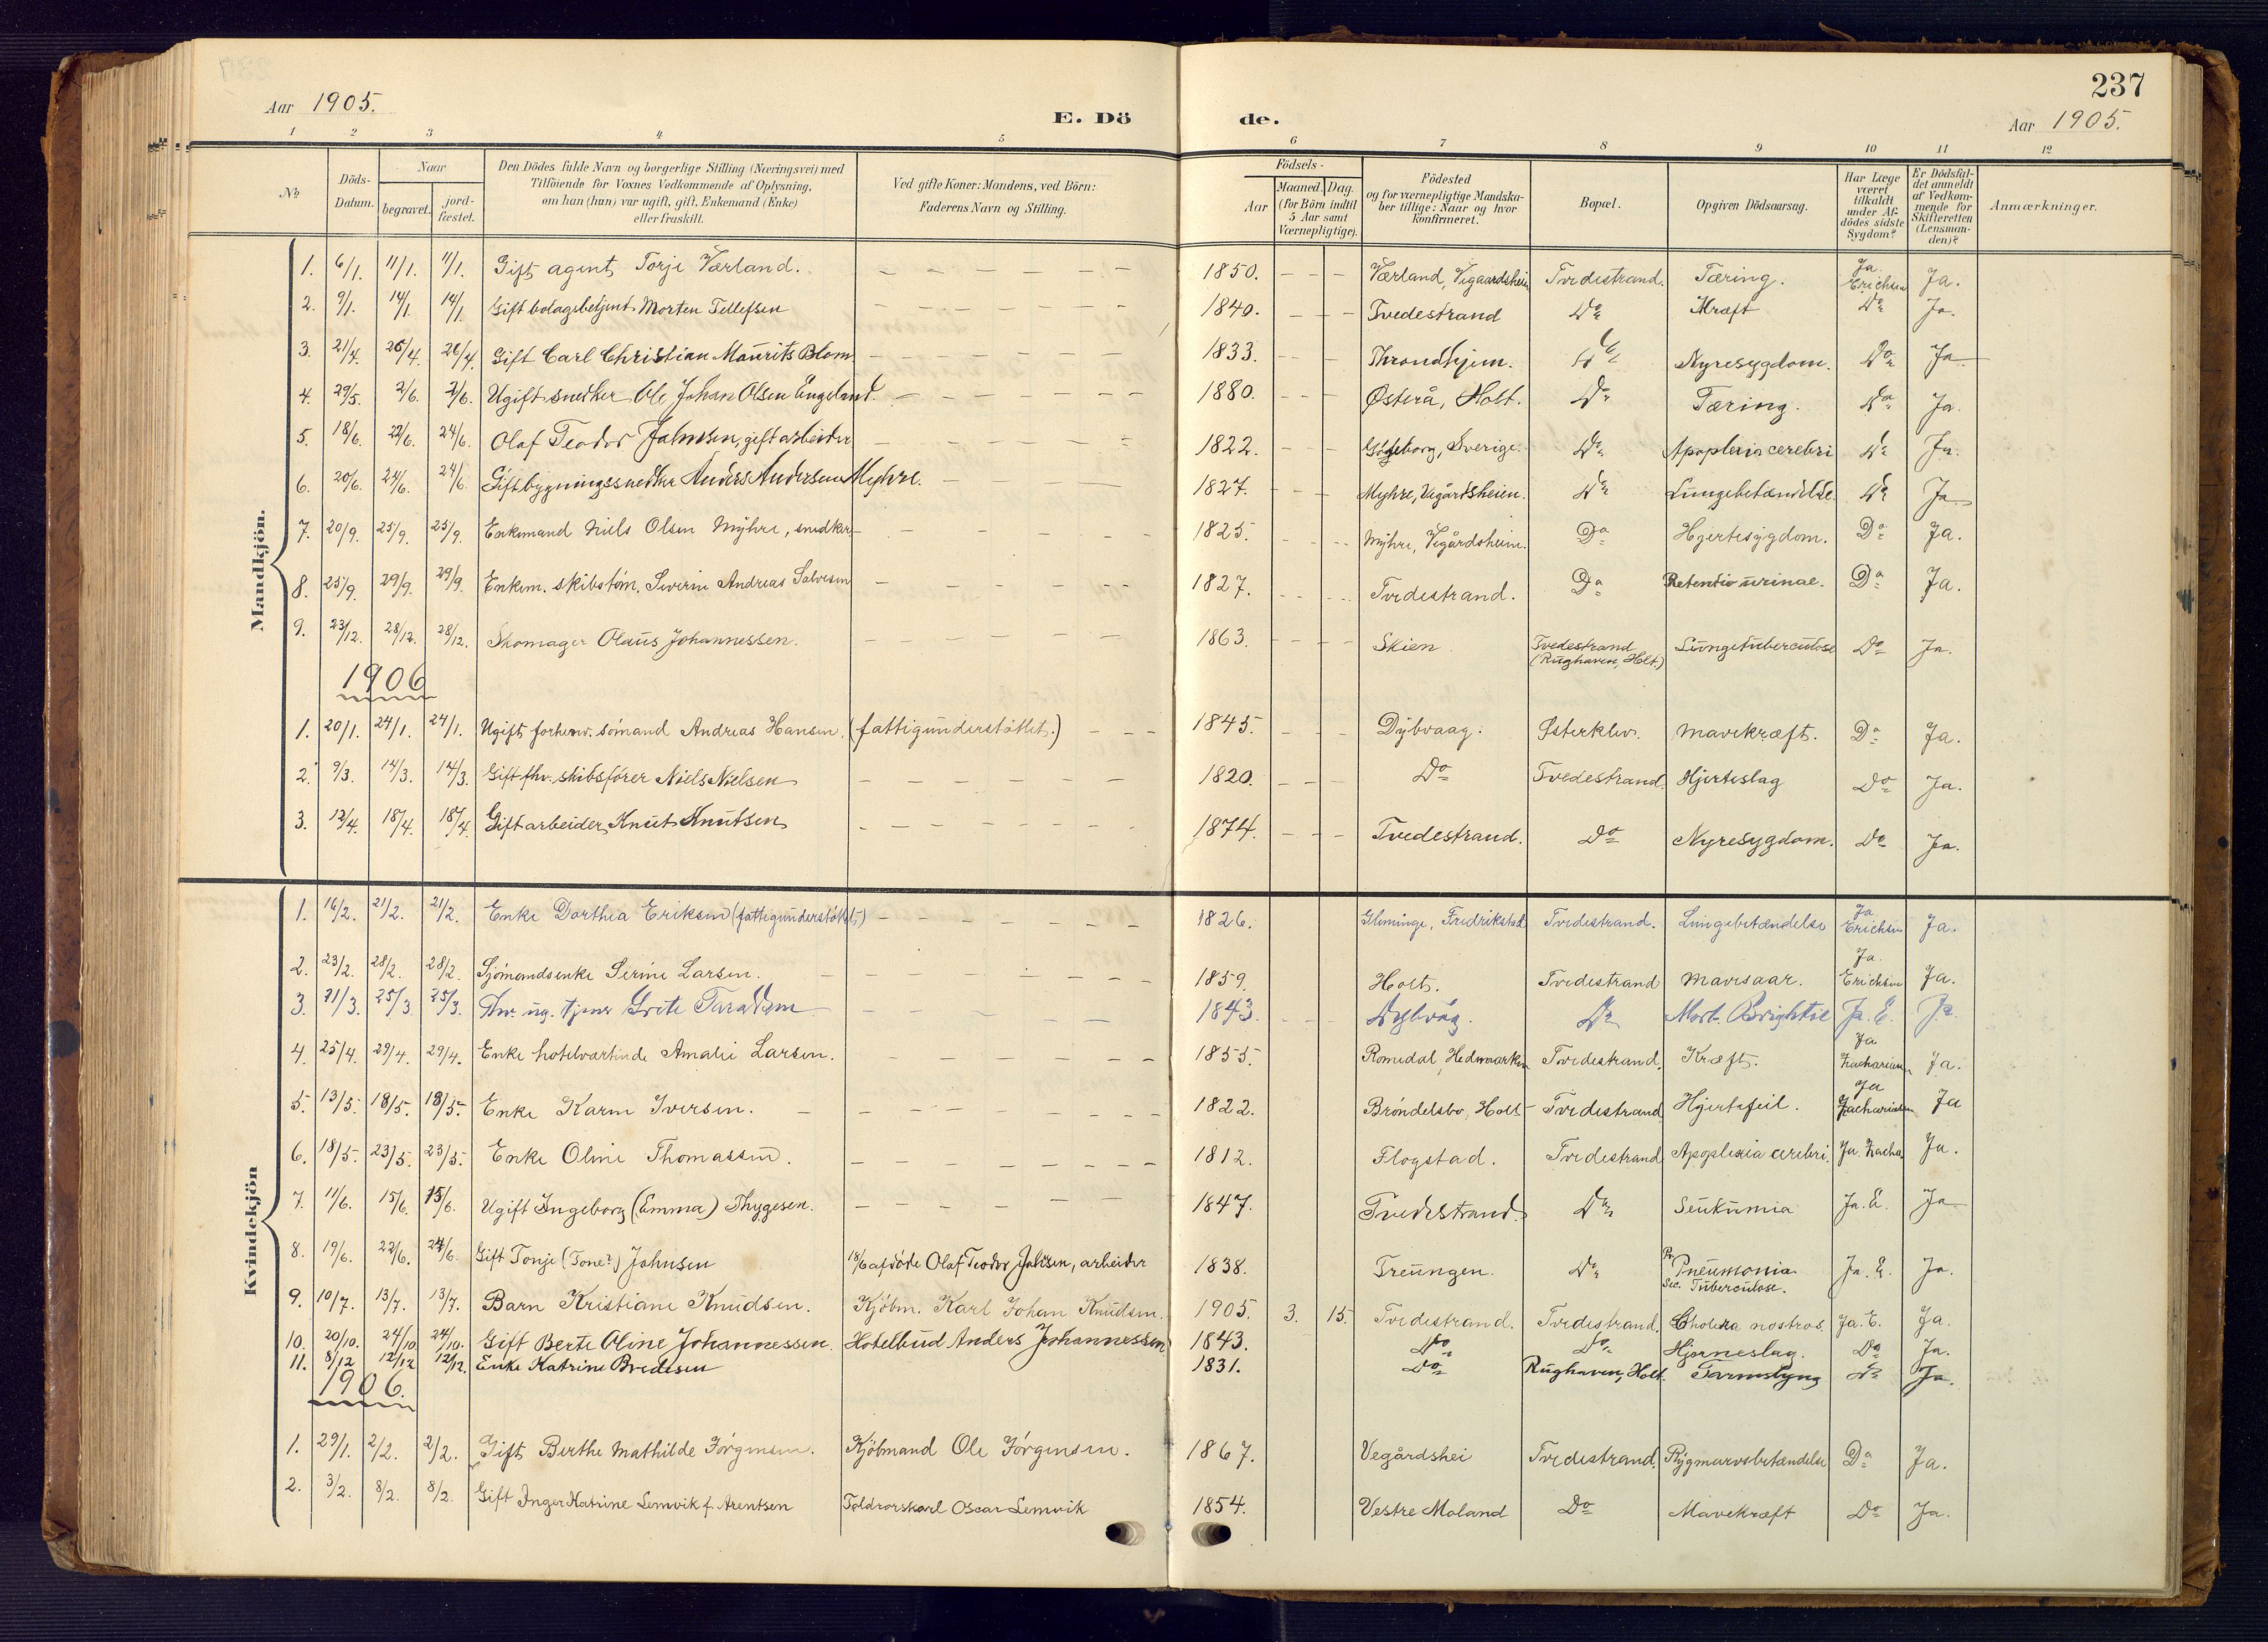 237
Aar 1905.
E. Dö de.
Aar 1905.
1 2 3 4 5 6 7 8 9 10 11 12
No
Döds-Datum.
Naar
begravet.
jord-fæstet.
Den Dödes fulde Navn og borgerlige Stilling (Næringsvei) med
Tilföiende for Voxnes Vedkommende af Oplysning,
om han (hun) var ugift, gift, Enkemand (Enke)
eller fraskilt.
Ved gifte Koner: Mandens, ved Börn:
Faderens Navn og Stilling.
Födsels-
Aar
Maaned. Dag.
(for Börn indtil
5 Aar samt
Værnepligtige).
Födested
og for værnepligtige Mandska-
ber tillige: Naar og hvor
konfirmeret.
Bopæl.
Opgiven Dödsaarsag.
Har Læge
været
tilkaldt
under Af-
dödes sidste
Sygdom?
Er Dödsfal-
det anmeldt
af Vedkom-
mende for
Skifteretten
(Lensman-
den)?
Anmærkninger.
Mandkjön.
1. 6/1. 11/1. 11/1. Gift agent Torje Værland. 1850. Værland, Vegaardsheien Tvedestrand. Tæring. Ja. Erichsen Ja.
2. 9/1. 14/1. 14/1. Gift bolagsbetjent Morten Tellefsen 1840. Tvedestrand Do Kræft Do Ja.
3. 21/4. 26/4 26/4. Gift Carl Christian Maurits Blom 1833. Throndhjem. Do Nyresygdom. Do Ja
4. 29/5. 2/6. 2/6. Ugift snedker Ole Johan Olsen Engeland. 1880. Østerå, Holt. Do Tæring. Do Ja.
5. 18/6. 22/6. 24/6. Olaf Teodor Jahnsen, gift arbeider 1822. Göteborg, Sverige. Do Apoplexia cerebri Do Ja.
6. 20/6. 24/6. 24/6. Gift bygningssnedker Anders Andersen Myhre. 1827. Myhre, Vegårdsheien. Do Lungebetændelse. Do Ja
7. 20/9. 25/9. 25/9. Enkemand Niels Olsen Myhre, snedker 1825. Myhre, Vegårdsheien. Do Hjertesygdom. Do Ja.
8. 25/9. 29/9. 29/9. Enkem. skibstøm. Severin Andreas Salvesen 1827. Tvedestrand. Do Retentio urinae. Do Ja.
9. 23/12. 28/12. 28/12. Skomager Olaus Johannessen. 1863. Skien. Tvedestrand (Rughaven, Holt.) Lungetuberculose Do Ja.
1906
1. 20/1. 24/1. 24/1. Ugift forhenv. sømand Andreas Hansen. (fattigunderstøttet.) 1845. Dybvaag. Østerklev. Mavekræft. Do Ja.
2. 9/3. 14/3. 14/3. Gift fhv. skibsfører Niels Nielsen 1820. Do Tvedestrand. Hjerteslag Do Ja.
3. 12/4. 18/4. 18/4. Gift arbeider Knut Knutsen 1874. Tvedestrand. Do Nyresygdom. Do Ja.
Kvindekjön
1. 16/2. 21/2. 21/2. Enke Dorthea Eriksen (fattigunderstøttet) 1826. Glemminge, Fredrikstad Tvedestrand. Lungebetændelse Ja Erichsen Ja.
2. 23/2. 28/2. 28/2. Sjömandsenke Serine Larsen. 1859. Holt. Tvedestrand Mavesaar. Ja. Erichsen Ja.
3. 21/3. 25/3 25/3. Fhv. ug. tjener Grete 1843. Dybvåg. Do Morb. Brightii Ja. E. Ja.
4. 25/4. 29/4. 29/4. Enke hotelvertinde Amalie Larsen. 1855. Romedal, Hedemarken Tvedestrand. Kræft. Ja Zachariasen Ja.
5. 13/5. 18/5. 18/5. Enke Karen Iversen. 1822. Bröndelsbo, Holt Tvedestrand Hjertefeil. Ja Zachariasen Ja
6. 18/5. 23/5. 23/5. Enke Oline Thomassen. 1812. Flogstad. Tvedestrand Apoplexia cerebri. Ja. Zacha Ja.
7. 11/6. 15/6. 15/6. Ugift Ingeborg (Emma) Thygesen. 1847. Tvedestrand. Do Leukumia Ja. E. Ja
8. 19/6. 22/6. 24/6. Gift Tonje (Tone?) Jahnsen 18/6 afdöde Olaf Teodor Jahnsen, arbeider 1838. Treungen. Do Pr. Pneumonia Sec. Tuberculose. Ja. E. Ja.
9. 10/7. 13/7. 13/7. Barn Kristiane Knudsen. Kjöbm. Karl Johan Knudsen. 1905. 3. 15. Tvedestrand. Tvedestrand. Cholera nostras. Ja. E. Ja.
10. 20/10. 24/10 24/10. Gift Berte Oline Johannessen. Hotelbud Anders Johannessen 1843. Do Do Hjerneslag. Do Ja.
11. 8/12 12/12 12/12. Enke Katrine Bredesen 1831. Do Rughaven, Holt. Tarmslyng Do Ja.
1906.
1. 29/1. 2/2. 2/2. Gift Berthe Mathilde Jörgensen. Kjöbmand Ole Jörgensen. 1867. Vegårdshei Tvedestrand. Rygmarvsbetændelse Do Ja.
2. 3/2. 8/2. 8/2. Gift Inger Katrine Lemvik f. Arentsen Toldrorskarl Oscar Lemvik 1854. Vestre Moland Do Mavekræft Do Ja.